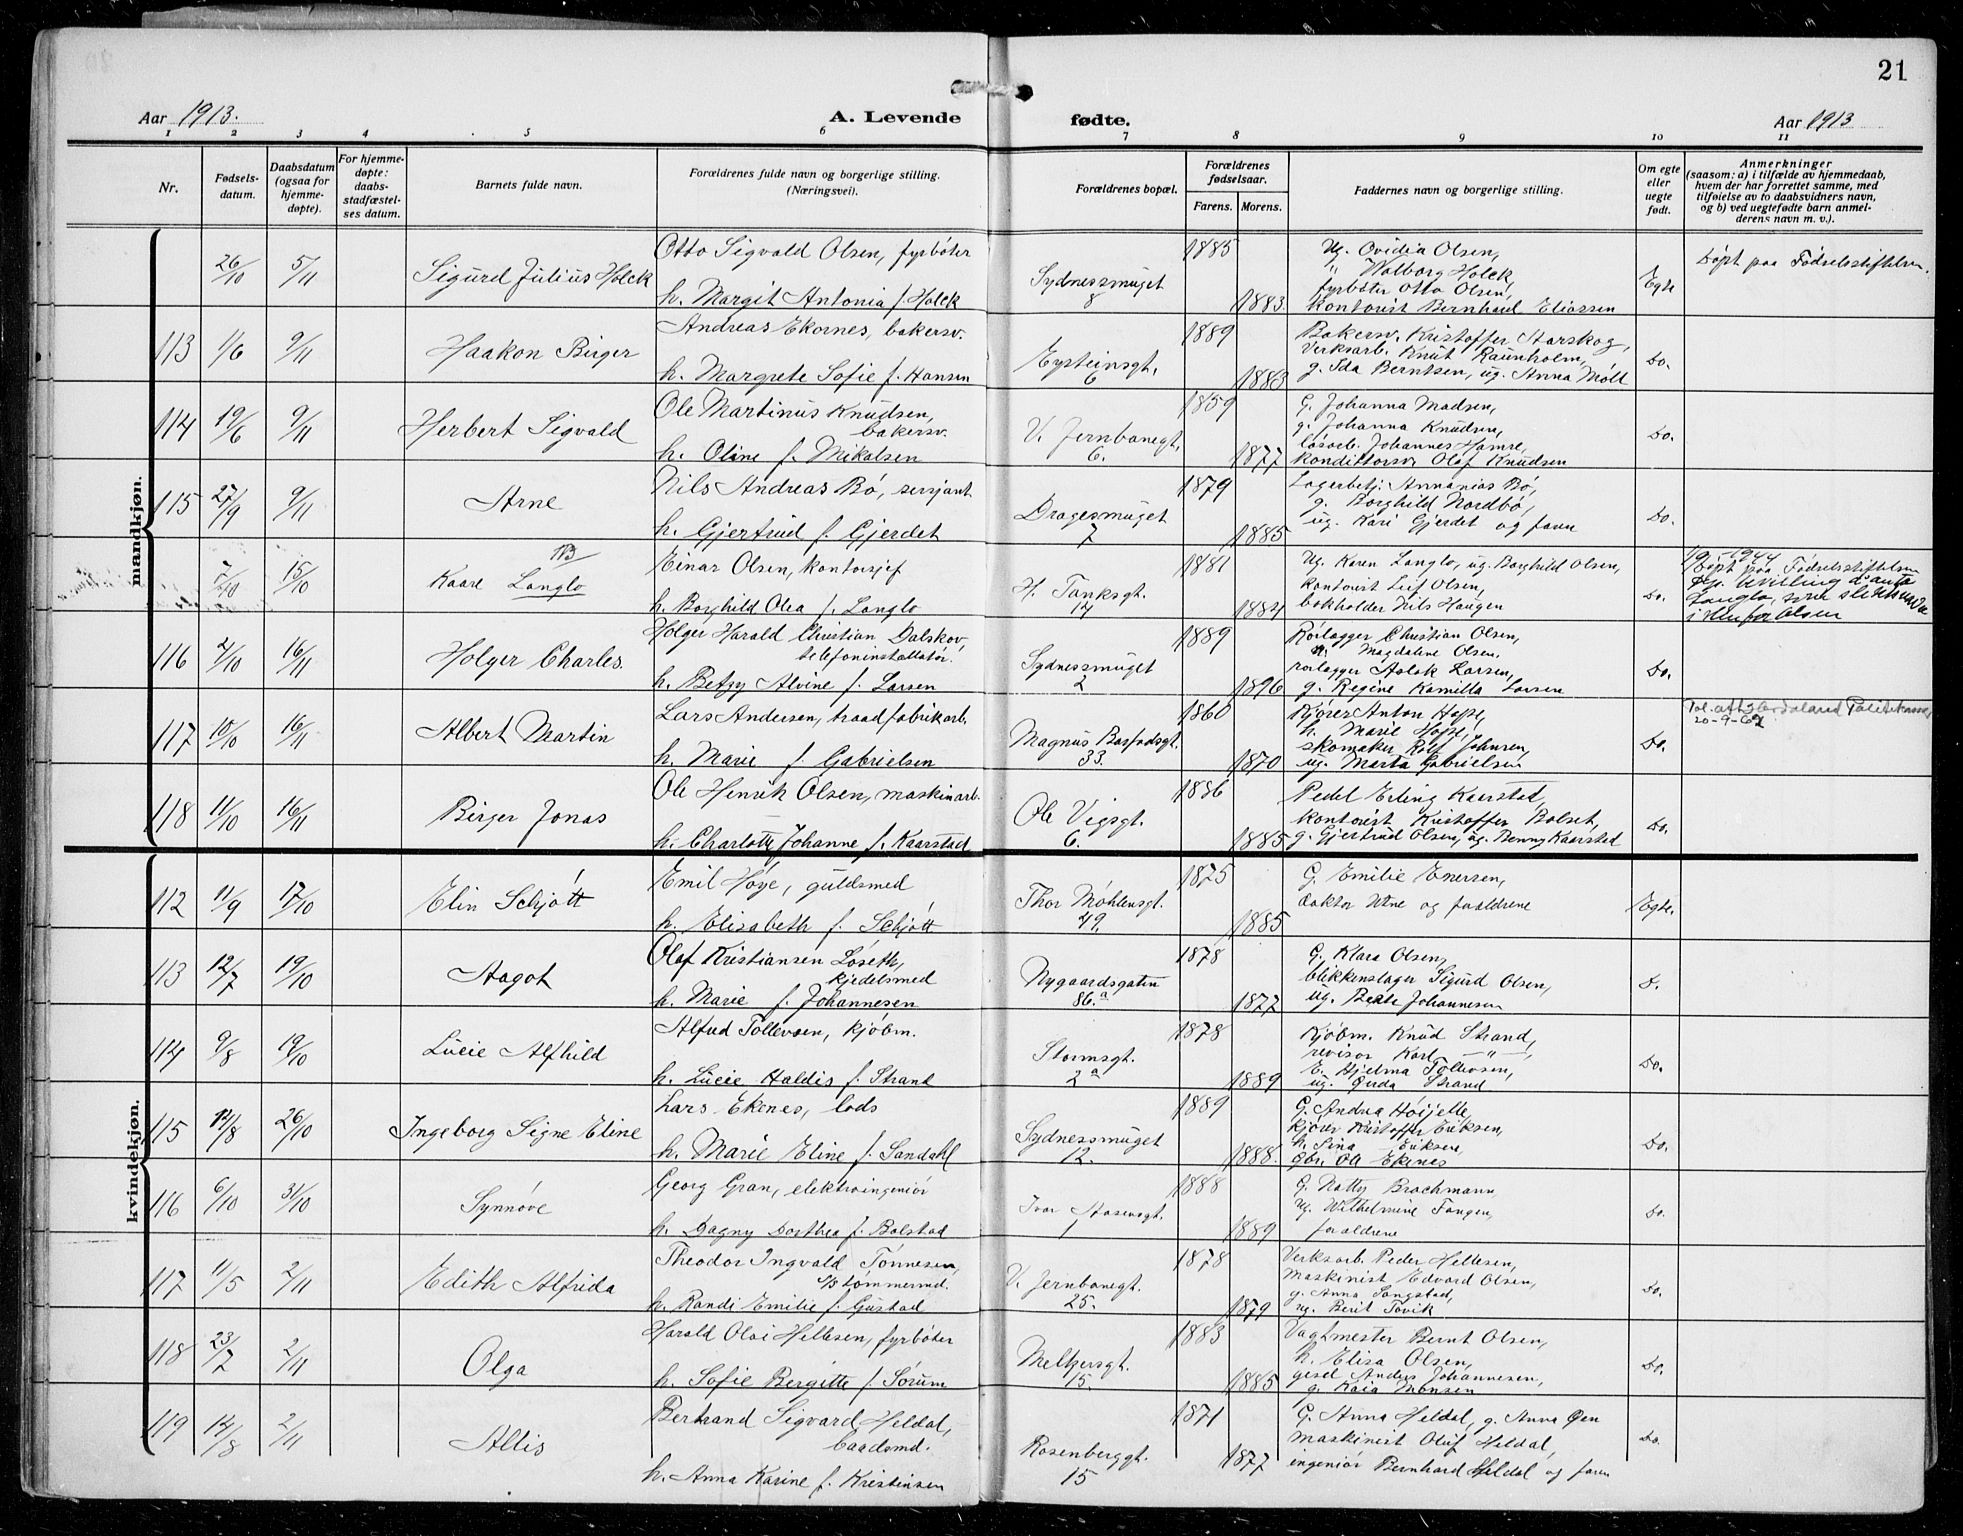 21
Aar 1913.
A. Levende fødte.
Aar 1913
1 2 3 4 5 6 7 8 9 10 11
Nr.
Fødsels-
datum.
Daabsdatum
(ogsaa for
hjemme-
døpte).
For hjemme-
døpte:
daabs-
stadfæstel-
ses datum.
Barnets fulde navn.
Forældrenes fulde navn og borgerlige stilling.
(Næringsvei).
Forældrenes bopæl.
Forældrenes
fødselsaar.
Farens. Morens.
Faddernes navn og borgerlige stilling.
Om egte
eller
uegte
født.
Anmerkninger
(saasom: a) i tilfælde av hjemmedaab,
hvem der har forrettet samme, med
tilføielse av to daabsvidners navn,
og b) ved uegtefødte barn anmel-
derens navn m. v.).
mandkjøn.
26/10 5/11 Sigurd Julius Holck
Otto Sigvald Olsen, fyrbøter
h. Margit Antonia f. Holck
Sydnessmuget
8
1885
1883
Ug. Ovidia Olsen,
" Walborg Holck,
fyrbøter Otto Olsen,
kontorist Bernhard Eliassen
Egte
Døpt paa Fødselsstiftelsen.
113 1/6 9/11 Haakon Birger
Andreas Ekornes, bakersv.
h. Margrete Sofie f. Hansen
Eysteinsgt.
6
1889
1883
Bakersv. Kristoffer Starskog,
Verksarb. Knut Raunholm,
g. Ida Berntsen, ug. Anna Moll
Do.
114 19/6 9/11 Herbert Sigvald
Ole Martinus Knudsen,
bakersv.
h. Oline f. Mikalsen
V. Jernbanegt.
6.
1859
1877
G. Johanna Madsen,
g. Johanna Knudsen,
løsarb. Johannes Hamre,
kondittorsv. Olaf Knudsen
Do.
115 27/9 9/11 Arne
Nils Andreas Bø, sersjant
h. Gjertrud f. Gjerdet
Dragesmuget
7
1879
1885
Lagerbetj. Annanias Bø,
g. Borghild Nordbø,
ug. Kari Gjerdet og faren
Do.
15/10 Kaare Langlo
NB
Einar Olsen, kontorsjef
h. Borghild Olea f. Langlo
H. Tanksgt.
14
1881
1884
Ug. Karen Langlo, ug. Borghild Olsen,
kontorist Leif Olsen,
bokholder Nils Haugen
Do.
Døpt paa Fødselsstiftelsen
bevilling
Langlo, som slektsnavn
i stenfor Olsen
116 2/10 16/11 Holger Charles.
Holger Harald Christian Dalskov,
telefoninstallatør.
h. Betzy Alvine f. Larsen
Sydnessmuget
2
1889
1896
Rørlægger Christian Olsen,
Magdalene Olsen,
rørlægger Aslak Larsen,
g. Regine Kamilla Larsen
Do.
117 10/10 16/11 Albert Martin
Lars Andersen, traadfabrikarb.
h. Marie f. Gabrielsen
Magnus Barfodsgt.
33.
1860
1870
Kjører Anton Hope,
h. Marie Hope,
skomaker Rolf Johnsen,
ug. Marta Gabrielsen
Do.
118 11/10 16/11 Birger Jonas
Ole Henrik Olsen, maskinarb.
h. Charlotte Johanne f. Kaarstad
Ole Vigsgt.
6.
1885
Pedel Erling Kaarstad,
kontorist Kristoffer Bolset,
g. Gjertrud Olsen, ug. Benny Kaarstad
Do.
kvindekjøn.
112 11/9 17/10 Elin Schjøtt
Emil Høye, guldsmed
h. Elisabeth f. Schjøtt
Thor Møhlensgt.
49.
1875
1885
G. Emilie Enersen,
doktor Wine og forældrene
Egte.
113 12/7 19/10 Aagot
Olaf Kristiansen Løseth,
kjedelsmed
h. Marie f. Johannesen
Nygaardsgaten
86.a
1878
1877
G. Klara Olsen,
blikkenslager Sigurd Olsen,
ug. Berte Johannesen
D.
114 9/8 19/10 Lucie Alfhild
Alfred Tollevsen, kjøbm.
h. Lucie Haldis f. Strand
Stormsgt.
2a
1878
1889
Kjøbm. Knud Strand,
revisor Karl —"—,
E. Hjelma Tollevsen,
ug. Gerda Strand
Do.
115 14/8 26/10 Ingeborg Signe Eline
Lars Ekenes, lods
h. Marie Eline f. Sandahl
Sydnessmuget
12.
1889
1888.
G. Andrea Høijelle,
kjører Kristoffer Eriksen,
h. Sina Eriksen,
gbr. Ole Ekenes
Do.
116 6/10 31/10 Synnøve
Georg Gran, elektroingeniør
h. Dagny Dorthea f. Bolstad
Ivar Aasensgt.
1
1888
1889
G. Natty Brochmann,
ug. Wilhelmine Fangen,
forældrene
Do.
117 11/5 2/11 Edith Alfrida
Theodor Ingvald Tønnesen,
s/s tømmermd.
h. Randi Emilie f. Gustad
V. Jernbanegt.
25.
1878
1879
Verksarb. Peder Hellesen,
maskinist Edvard Olsen,
g. Anna Sangstad,
ug. Berit Tovik
Do.
118 23/7 2/11 Olga
Harald Olai Hellesen, fyrbøter
h. Sofie Bergitte f. Sørum
Meltzersgt.
15.
1883
1885
Vagtmester Bernt Olsen,
h. Elisa Olsen,
gesel Anders Johannesen,
g. Kaia Monsen
Do.
119 14/8 2/11 Allis
Bertrand Sigvard Heldal,
baadsmd.
h. Anna Karine f. Kristinsen
Rosenberggt.
15
1871
1877
G. Anna Heldal, g. Anna Øen
maskinist Oluf Heldal,
ingeniør Bernhard Heldal og faren
Do.